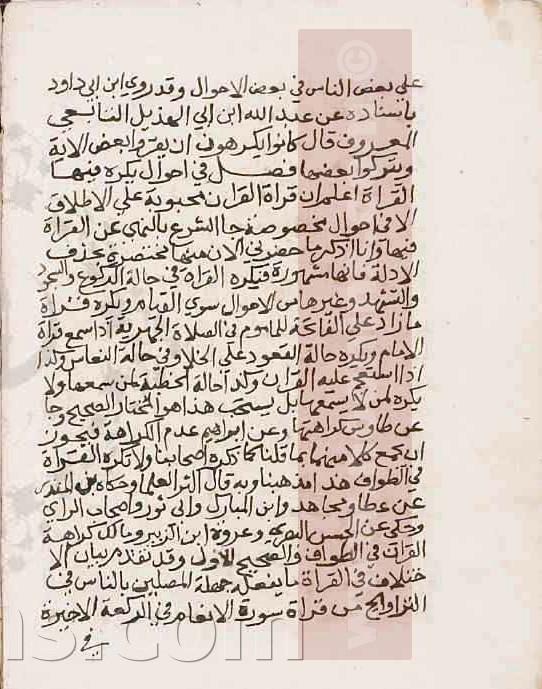 علي بعض الناس في بعض الاحوال وقد روي ابن ابي داود
باسناده عن عبد الله ابن ابي الهذيل التابعي
المعروف قال كانوا يكرهون ان يقرؤا بعض الاية
ويتركوا بعضها فصل في احوال يكره فيها
القراة اعلم ان قراة القران محبوبة علي الاطلاق
الا في احوال مخصوصة جا الشرع بالنهي عن القراة
فيها وانا اذكر ما حضرني الان منها مختصرة بحذف
الادلة فانها مشهورة فيكره القراة في حالة الركوع والسجود
والتشهد وغيرها من الاحوال سوي القيام ويكره قراة
ما زاد علي الفاتحة للماموم في الصلاة الجهرية اذا سمع قراة
الامام ويكره حالة القعود علي الخلا وفي حالة النعاس وكذا
اذا استعجم عليه القران وكذا حالة الخطبة لمن سمعها ولا
يكره لمن لا يسمعها بل يستحب هذا هو المختار الصحيح وجا
عن طاوس كراهتها وعن ابراهيم عدم الكراهة فيجوز
ان يجمع كلاميهما بما قلنا كما ذكره اصحابنا ولا تكره القراة
في الطواف هذا مذهبنا وبه قال اكثر العلما وحكاه بن المنذر
عن عطا ومجاهد وابن المبارك وابي ثور واصحاب الراي
وحكي عن الحسن البصري وعروة ابن الزبير ومالك كراهة
القراة في الطواف والصحيح الاول وقد تقدم بيان الا
ختلاف في القراة ما يفعله جهلة المصلين بالناس في
التراويح من قراة سورة الانعام في الركعة الاخيرة
في